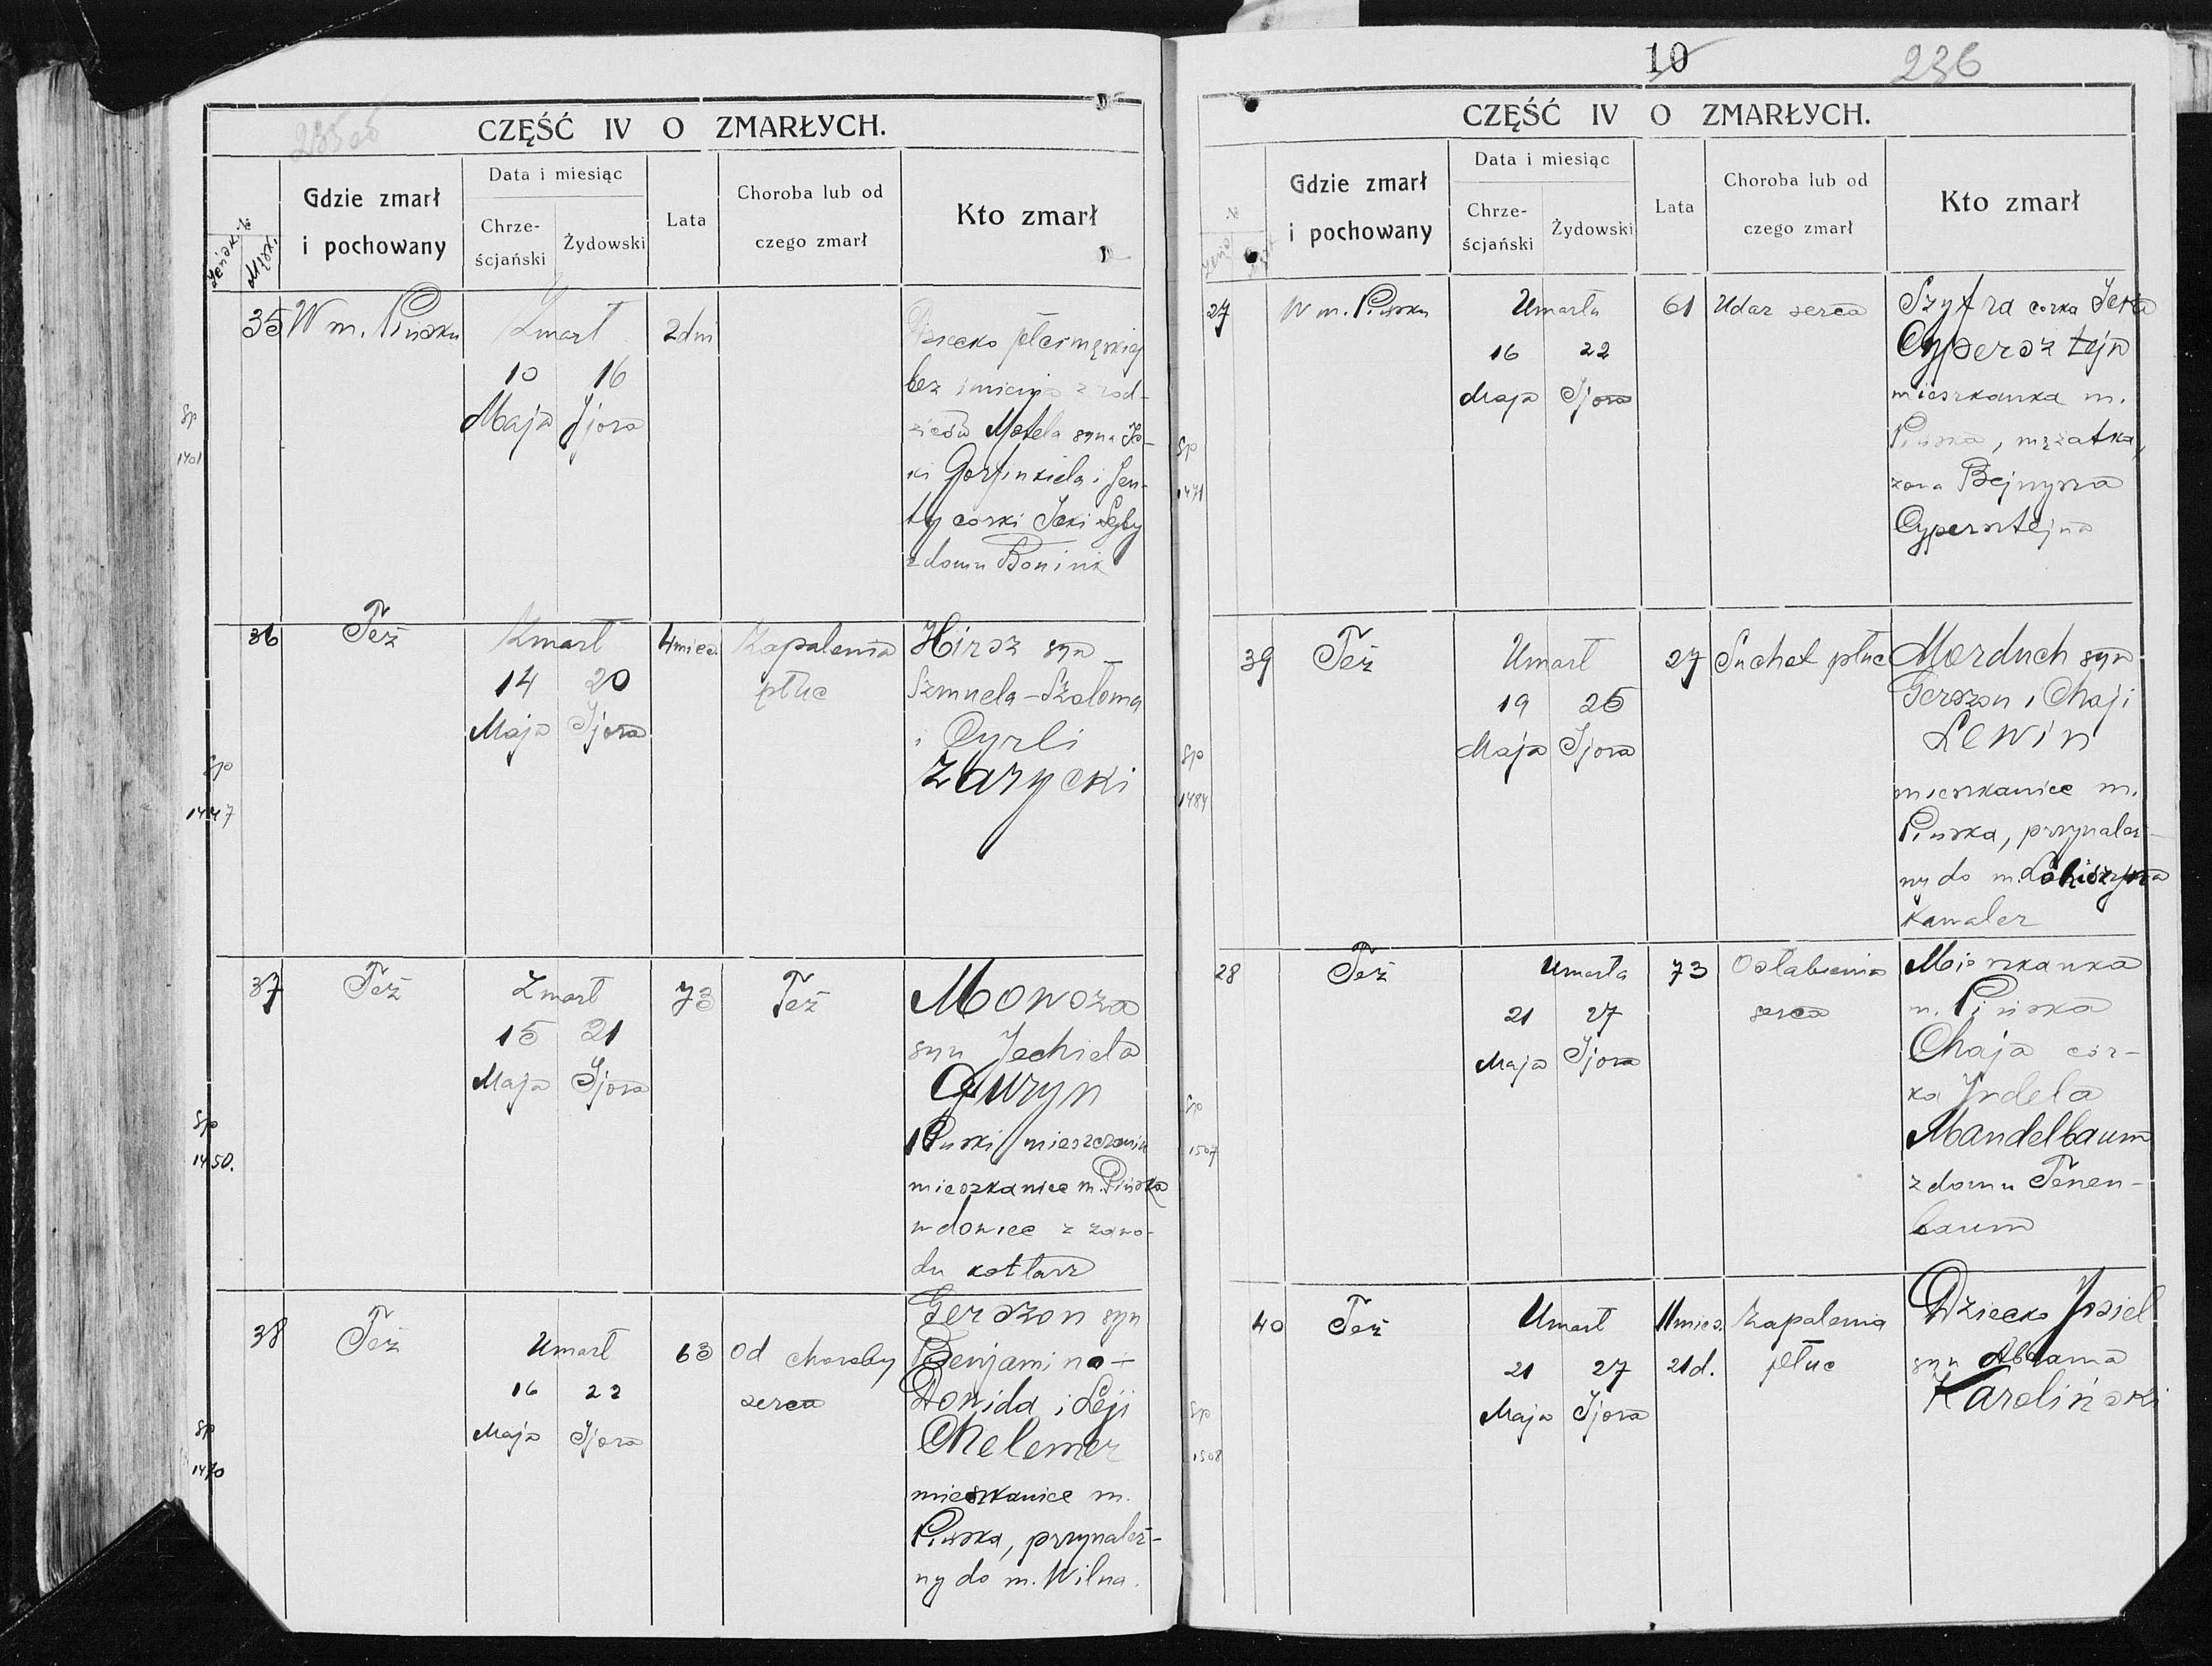 235 об
CZĘŚĆ IV O ZMARŁYCH.
Żeńsk. Męzk. №
Gdzie zmarł
i pochowany
Data i miesiąc
Chrze-
ścjański
Żydowski
Lata
Choroba lub od
czego zmarł
Kto zmarł
35 W m. Pińsku
Zmarł
10 16
Maja Ijora
2 dni
Dziecko płci męskiej
bez imienia z rod-
ziców Motela syna Jo-
ki Gorfinkiela i Jen-
ty corki Icki Leyby
z domu Bonink
Sp
1401
36
Też
Zmarł
14 20
Maja Ijora
4 mies.
Zapalenia
płuc
Hirsz syn
Szmuela-Szołoma
i Cyrli
Zarycki
Sp
1447
37
Też
Zmarł
15 21
Maja Ijora
73
Też
Mowsza
syn Jechiela
Guryn
Piński mieszczanin
mieszkaniec m. Pińska
wdowiec z zawo-
du kotlarz
Sp
1450.
38
Też
Umarł
16 22
Maja Ijora
63
Od choroby
serca
Gerszon syn
Benjamina-
Dowida i Leji
Chelemer
mieszkaniec m.
Pińska, przynależ-
ny do m. Wilna.
Sp
1470
10
236
CZĘŚĆ IV O ZMARŁYCH.
№
Gdzie zmarł
i pochowany
Data i miesiąc
Chrze-
ścjański
Żydowski
Lata
Choroba lub od
czego zmarł
Kto zmarł
27
W m. Pińsku
Umarła
16 22
Maja Ijora
61
Udar serca
Szyfra corka Icka
Cypersztejn
mieszkanka m.
Pińska, mężatka,
żona Bejnysza
Cypersztejna
Sp
1471
39
Też
Umarł
19 25
Maja Ijora
27
Suchot płuc
Morduch syn
Gerszon i Chaji
Lewin
mieszkaniec m.
Pińska, przynależ-
ny do m. Łohiszyna
kawaler
Sp
1484
28
Też
Umarła
21 27
Maja Ijora
73
Osłabienia
serca
Mieszkanka
m. Pińska
Chaja cór-
ka Judela
Mandelbaum
z domu Tenen-
baum
Sp
1507
40
Też
Umarł
21 27
Maja Ijora
11 mies.
21 d.
Zapalenia
płuc
Dziecko Josiel
syn Abrama
Karoliński
Sp
1508